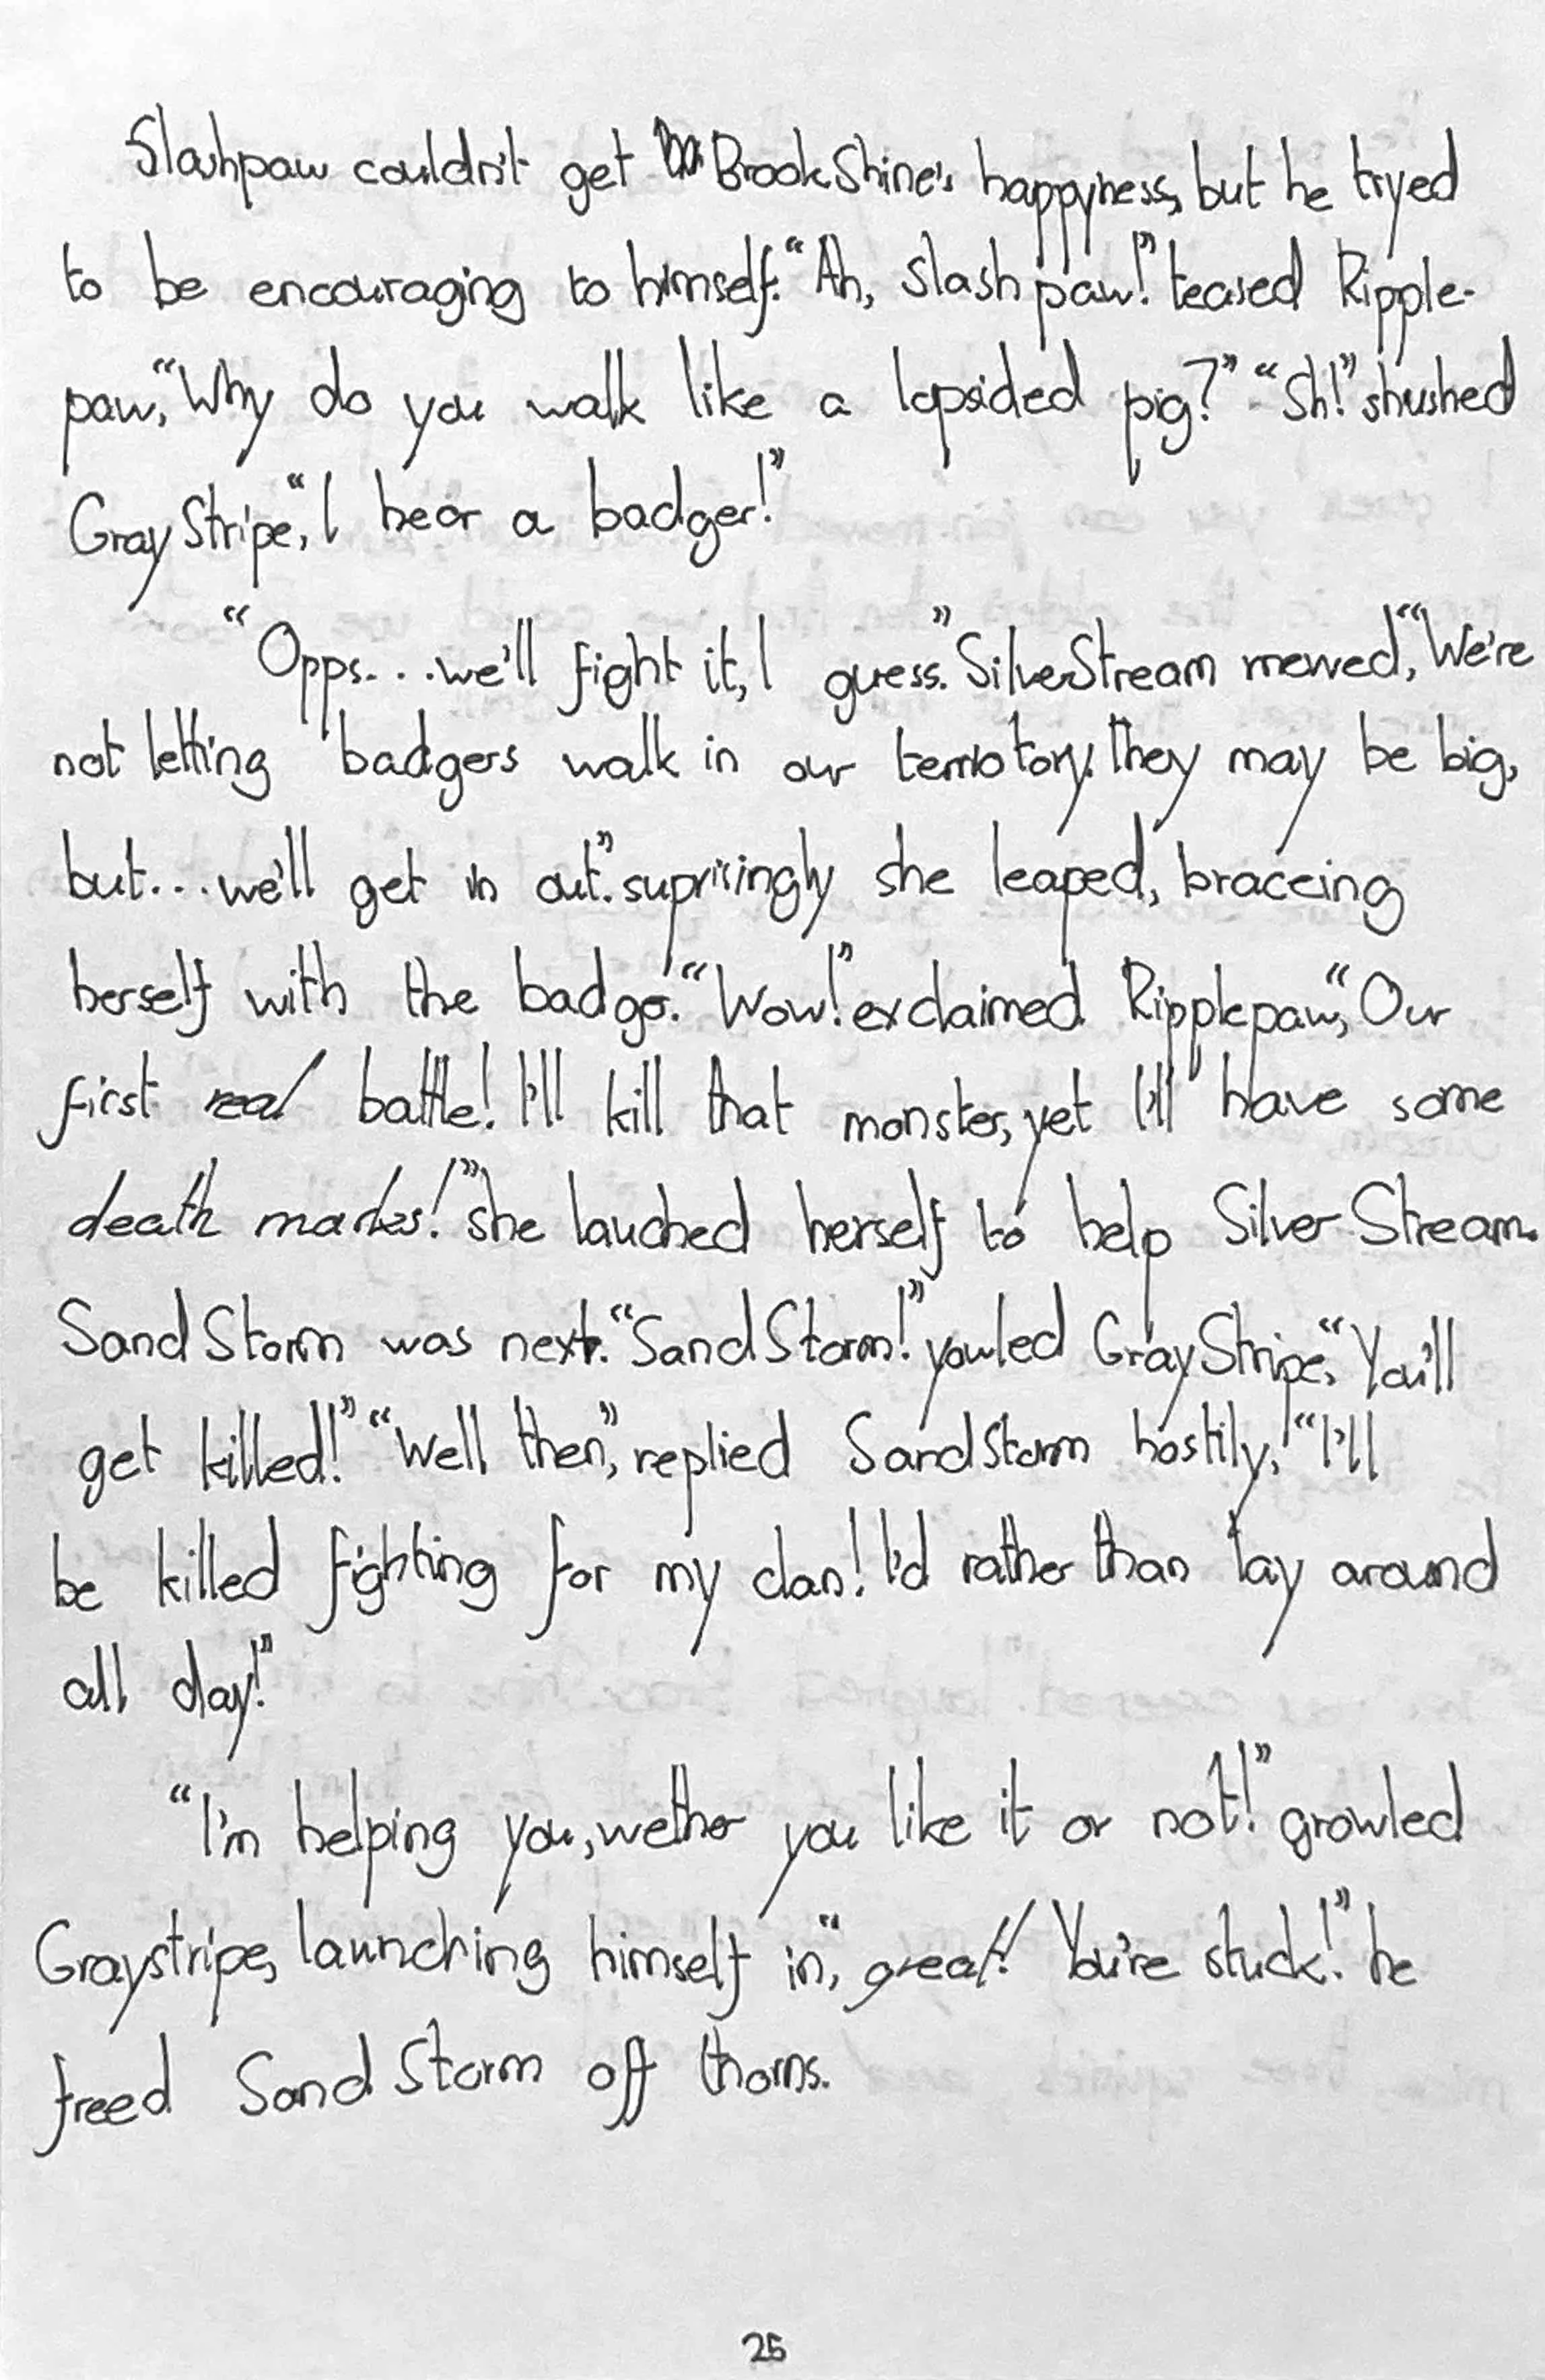 Slashpaw couldn't get BrookShine's happyness, but he tryed
to be encouraging to himself. “Ah, Slashpaw!” teased Ripple-
paw, “Why do you walk like a lopsided pig?” “Sh!” shushed
GrayStripe, “I hear a badger!”
“Opps...we'll fight it, I guess.” SilverStream mewed, “We're
not letting badgers walk in our terriotory. they may be big,
but...we'll get in out.” suprisingly she leaped, braceing
herself with the badger. “Wow!” exclaimed Ripplepaw, “Our
first real battle! I'll kill that monster, yet I'll have some
death marks!” she lauched herself to help SilverStream.
SandStorm was next. “SandStorm!” yowled GrayStripe, “You'll
get killed!” “Well then,” replied SandStorm hostily, “I'll
be killed fighting for my clan! I'd rather than lay around
all day!”
“I'm helping you, wether you like it or not!” growled
Graystripe, launching himself in, “great! You're stuck!” he
freed SandStorm off thorns.
25